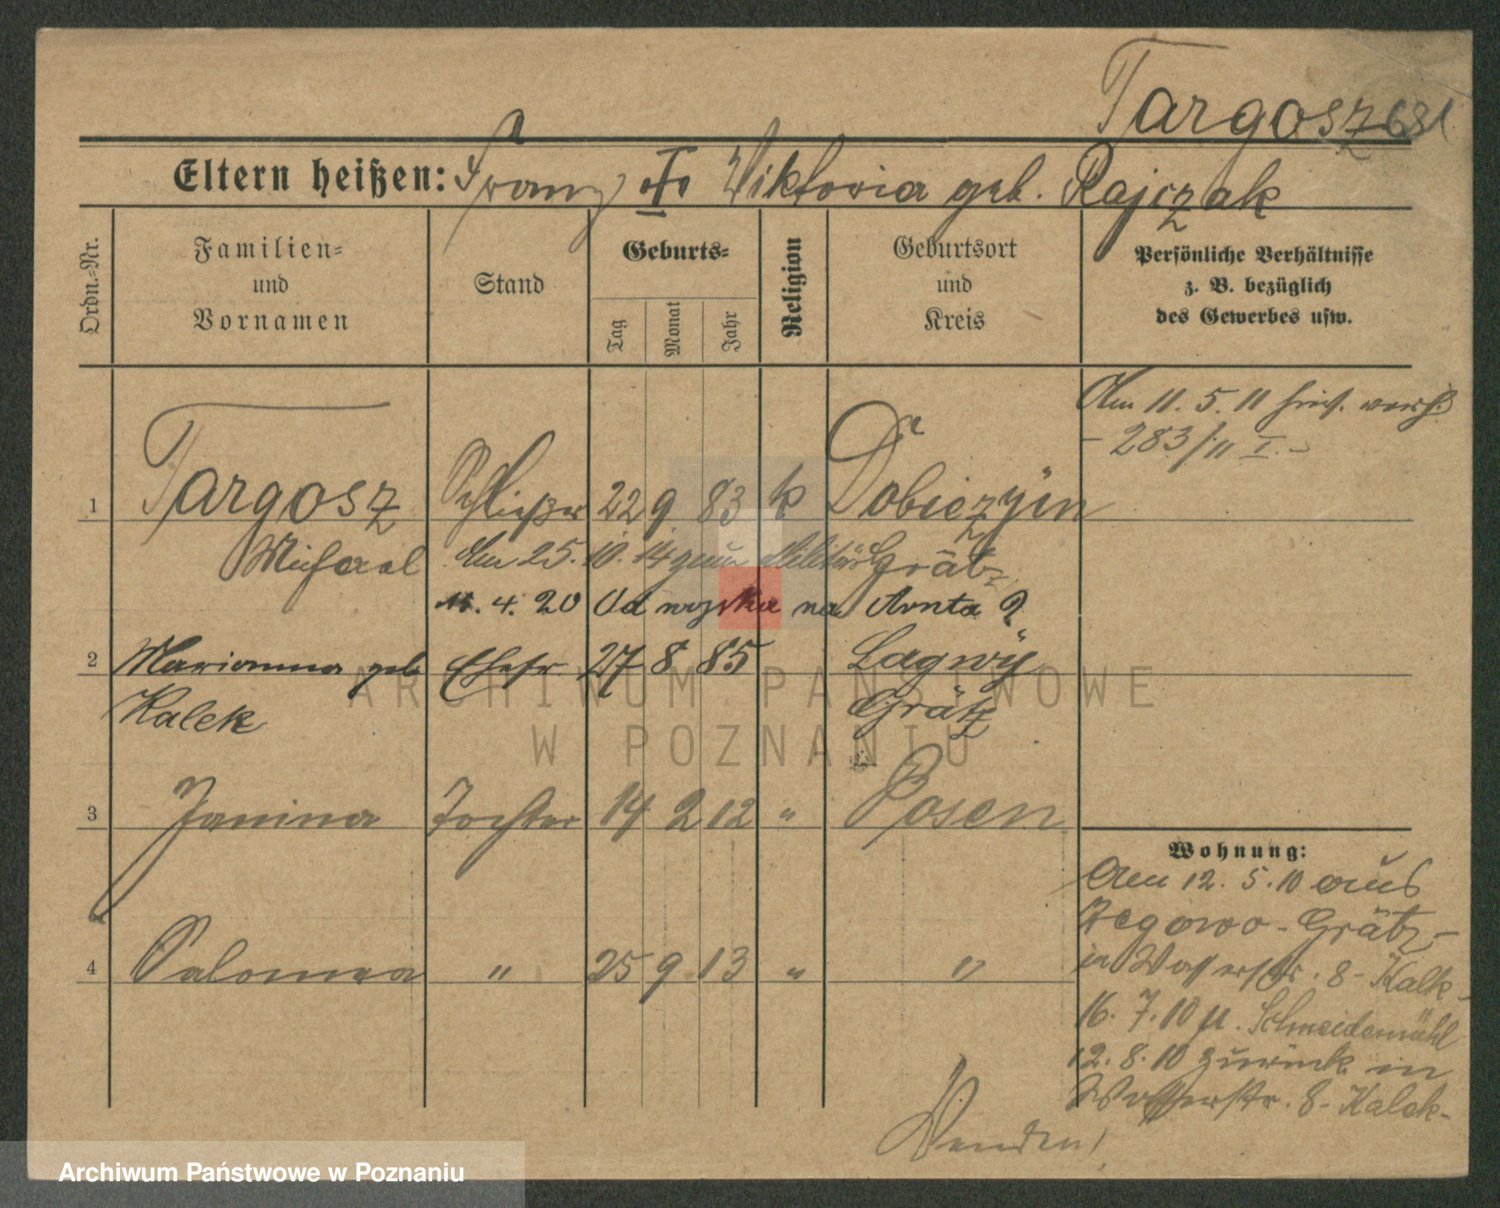 Targosz 631
Eltern heißen: Franz Viktoria geb. Rajczak
Ordn.-Nr.
Familien-
und
Vornamen
Stand
Geburts-
Tag
Monat
Jahr
Religion
Geburtsort
und
Kreis
Persönliche Verhältnisse
z. B. bezüglich
des Gewerbes usw.
Am 11. 5. 11
- 283/11 I. -
1 Targosz Schließer 22 9 83 k Dobiezyin
Michael Am 25. 10. 14 zum Militär Grätz
11. 4. 20 Od wojska na
2 Marianna geb Ehefr. 27 8 85 Lagwy
Kalek Grätz
3 Janina Tochter 14 2 12 " Posen
4 Salomea " 25 9 13 " "
Wohnung:
Am 12. 5. 10 aus
Zegowo - Grätz -
in Wasserstr. 8 - Kalk -
16. 7. 10 n. Schneidemühl
12. 8. 10 zurück in
Wasserstr. 8 - Kalek -
Wenden!
ARCHIWUM PAŃSTWOWE
W POZNANIU
Archiwum Państwowe w Poznaniu